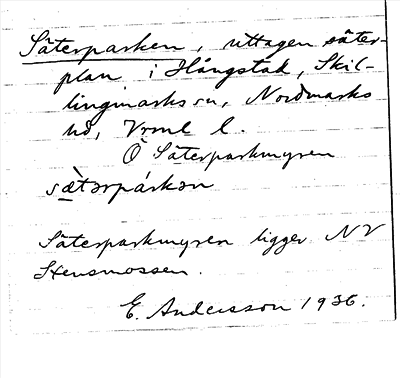 Säterparken, uttagen säter-
plan i Hångstad, Skil-
lingmarks sn, Nordmarks
hd, Vrml l.
Ö Säterparkmyren
sæ̀tərpárkən
Säterparkmyren ligger NV
Stensmossen.
E. Andersson 1936.